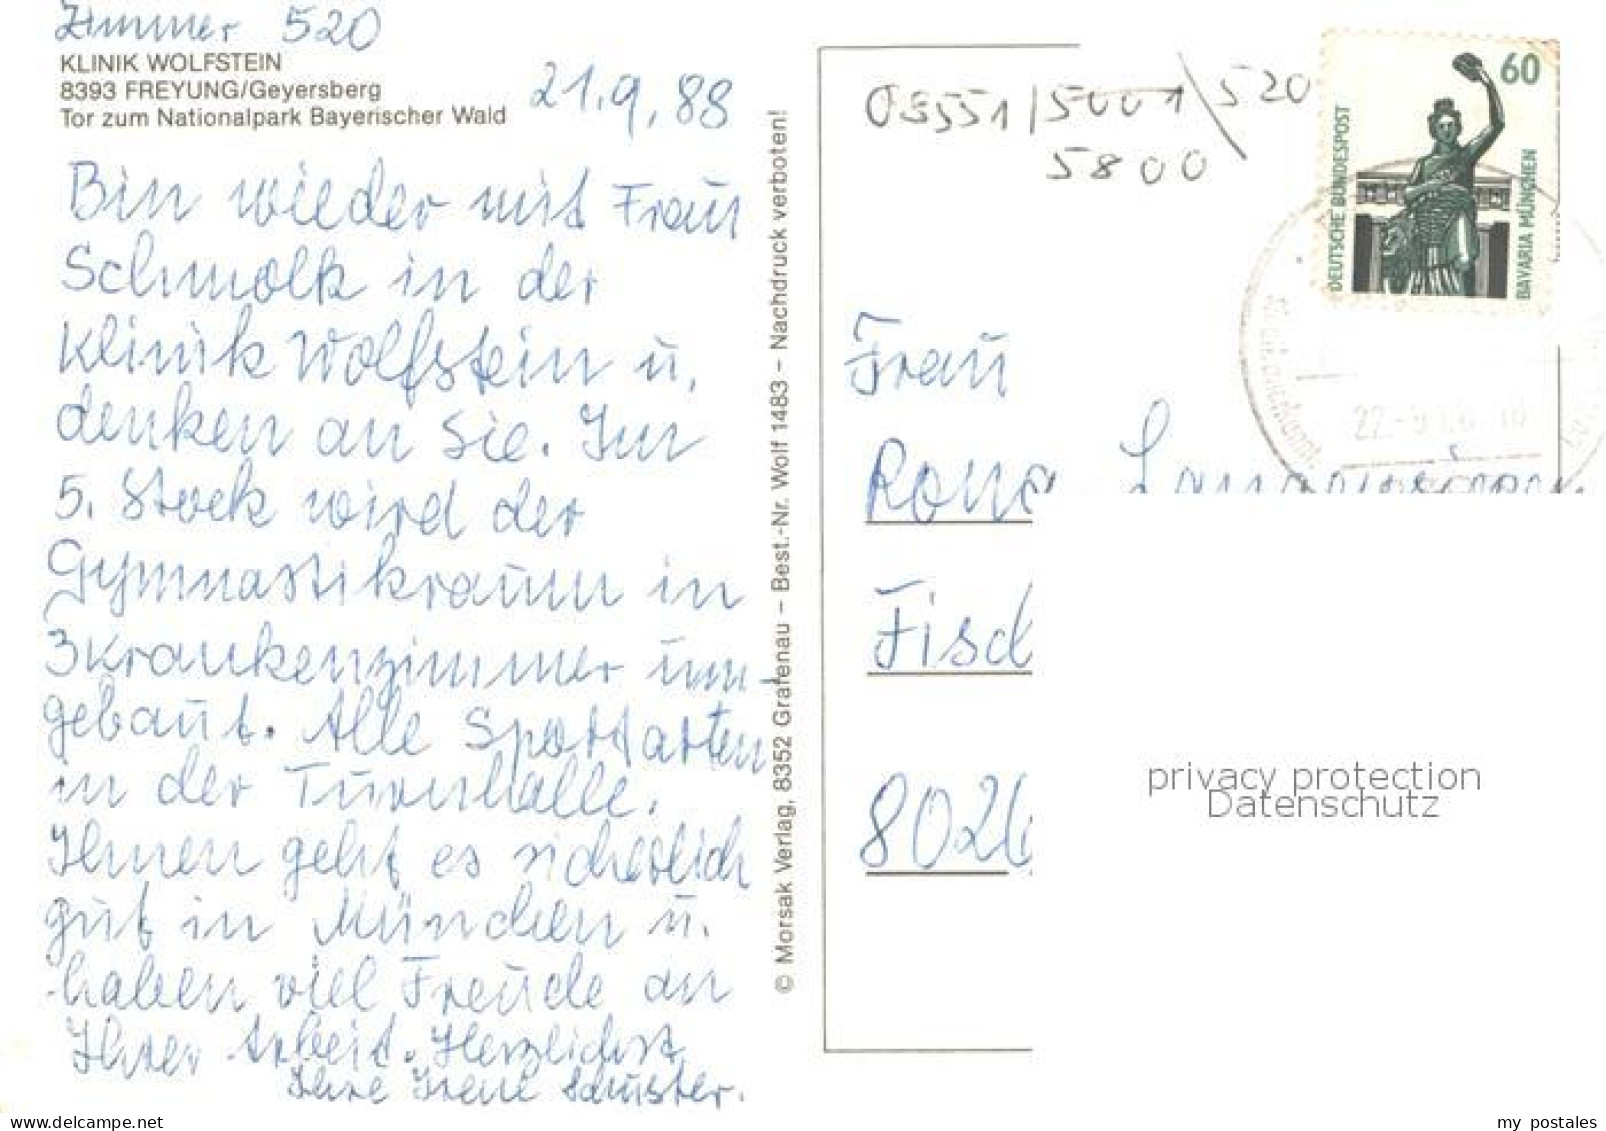 Zimmer 520
KLINIK WOLFSTEIN
8393 FREYUNG/Geyersberg
Tor zum Nationalpark Bayerischer Wald
21.9.88
Bin wieder mit Frau
Schmolk in der
Klinik Wolfstein u.
denken an Sie. Im
5. Stock wird der
Gymnastikraum in
3 Krankenzimmer um-
gebaut. Alle Sportarten
in der Turnhalle.
Ihnen geht es sicherlich
gut in München u.
haben viel Freude an
Ihrer Arbeit. Herzlichst
Ihre Irene Schuster.
© Morsak Verlag, 8352 Grafenau – Best.-Nr. Wolf 1483 – Nachdruck verboten!
08551/5001\520
5800
60
DEUTSCHE BUNDESPOST
BAVARIA MÜNCHEN
Frau
8026
privacy protection
Datenschutz
my postales